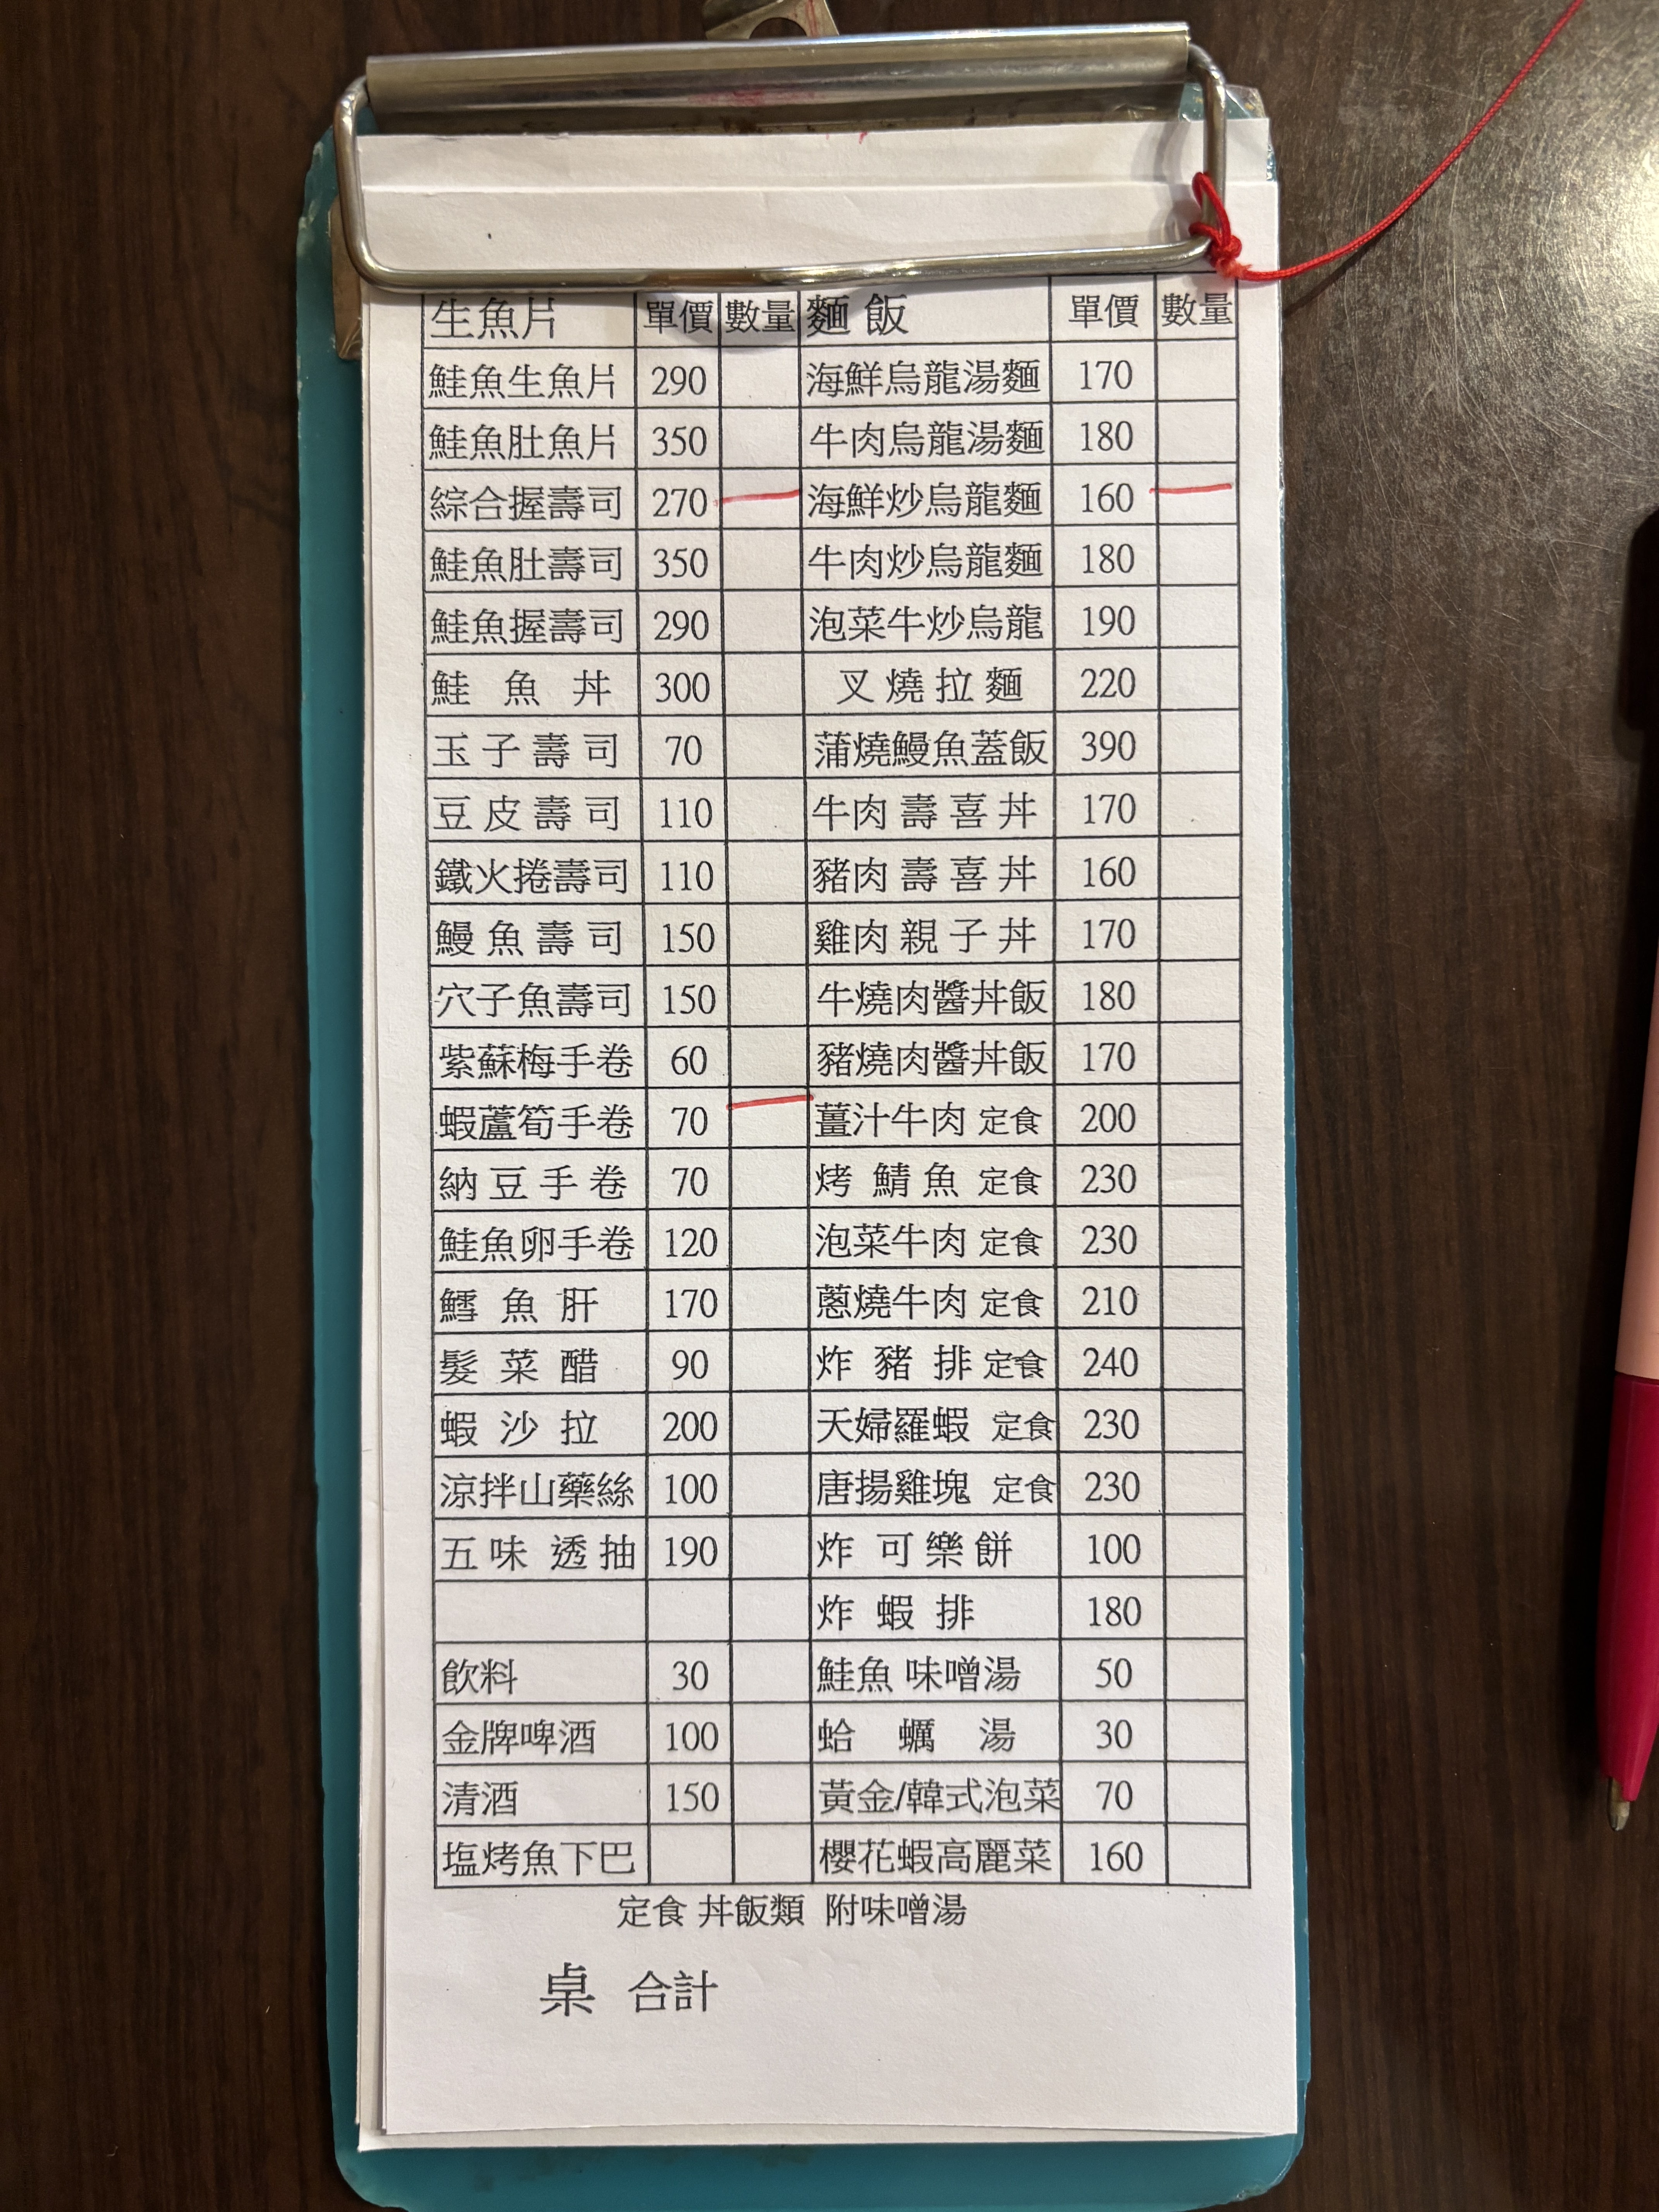 生魚片 單價 數量 麵飯 單價 數量
鮭魚生魚片 290 海鮮烏龍湯麵 170
鮭魚肚魚片 350 牛肉烏龍湯麵 180
綜合握壽司 270 海鮮炒烏龍麵 160
鮭魚肚壽司 350 牛肉炒烏龍麵 180
鮭魚握壽司 290 泡菜牛炒烏龍 190
鮭魚丼 300 叉燒拉麵 220
玉子壽司 70 蒲燒鰻魚蓋飯 390
豆皮壽司 110 牛肉壽喜丼 170
鐵火捲壽司 110 豬肉壽喜丼 160
鰻魚壽司 150 雞肉親子丼 170
穴子魚壽司 150 牛燒肉醬丼飯 180
紫蘇梅手卷 60 豬燒肉醬丼飯 170
蝦蘆筍手卷 70 薑汁牛肉 定食 200
納豆手卷 70 烤鯖魚 定食 230
鮭魚卵手卷 120 泡菜牛肉 定食 230
鱈魚肝 170 蔥燒牛肉 定食 210
髮菜醋 90 炸豬排 定食 240
蝦沙拉 200 天婦羅蝦 定食 230
涼拌山藥絲 100 唐揚雞塊 定食 230
五味透抽 190 炸可樂餅 100
炸蝦排 180
飲料 30 鮭魚 味噌湯 50
金牌啤酒 100 蛤蠣湯 30
清酒 150 黃金/韓式泡菜 70
塩烤魚下巴 櫻花蝦高麗菜 160
定食 丼飯類 附味噌湯
桌 合計